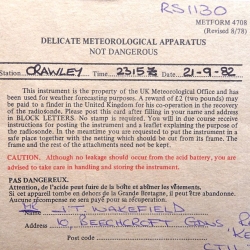 RS1130
METFORM 4708
(Revised 8/78)
DELICATE METEOROLOGICAL APPARATUS
NOT DANGEROUS
Station CRAWLEY Time 2315 Z Date 21-9-82
This instrument is the property of the UK Meteorological Office and has
been used for weather forecasting purposes. A reward of £2 (two pounds) may
be paid to a finder in the United Kingdom for his co-operation in the recovery
of the radiosonde. Please post this card after filling in your name and address
in BLOCK LETTERS. No stamp is required. You will in due course receive
instructions for posting the instrument and a leaflet explaining the purpose of
the radiosonde. In the meantime you are requested to put the instrument in a
safe place together with the netting which should be cut from its frame. The
frame and the rest of the attachments need not be kept.
CAUTION. Although no leakage should occur from the acid battery, you are
advised to take care in handling and storing the instrument.
PAS DANGEREUX.
Attention de l'acide peut fuire de la boîte et abîmer les vêtements.
Si cet appareil tombe en dehors de la Grande Bretagne, il peut être abandonné.
Aucune récompense ne sera payée pour sa récupération.
J T WAKEFIELD
Address 10, BEECHCROFT GDNS,
Post code